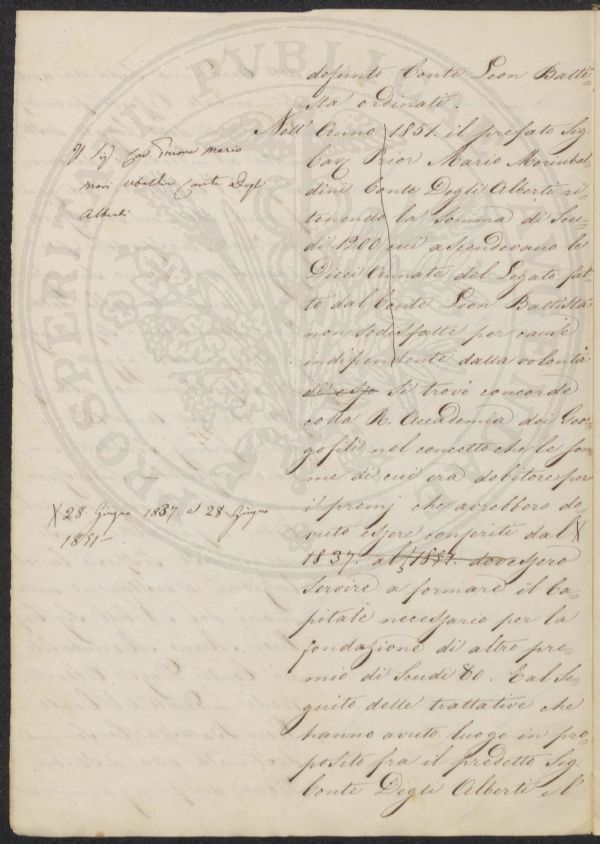 defunto Conte Leon Batti=
sta ordinati.
Nell' Anno 1851. il prefato Sig.
Cav. Prior Mario Morubal=
dini Conte Degli Alberti ri=
tenendo la Somma di Scu=
di 1200 cui ascendevano le
Dieci Annate del Legato fat=
to dal Conte Leon Battista
non sodisfatte per cause
indipendente dalla volontà
di esso si trovò concorde
colla R. Accademia dei Geor=
gofili nel concetto che le som=
me di cui era debitore per
i premj che avrebbero do=
vuto essere conferiti dal X
1837. al 1851. dovessero
servire a formare il Ca=
pitale necessario per la
fondazione di altro pre=
mio di Scudi 60. E al Se=
guito delle trattative che
hanno avuto luogo in pro=
posito fra il predetto Sig.
Conte Degli Alberti e l'
Il Sig. Cav. Priore Mario
Mori Ubaldini Conte degli
Alberti
X 28. Giugno 1837 al 28. Giugno
1851 -
PROSPERITATI PVBLICAE